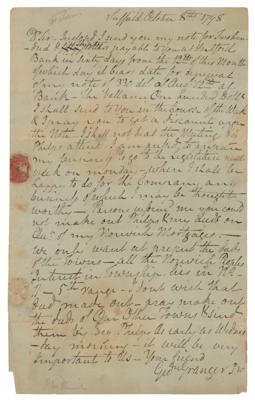 Suffield October 8th 1798
Dr Sir Inclosed I send you my note for Twohun-
dred dollars payable to you at Hartford
Bank in sixty days from the 12th of this Month
of which day it bears date for renewal
of my note of 12th of Augt at
Bank - the Ballance One hundred Dolls
I shall send to you in the Course of the Week
& pray you to get a Discount upon
the Note I shall not had the Mr
Phelps attend. I am oblig'd to prepare
my business to go to the Legislature next
week on monday - when I shall be
happy to do for the Company any
business of which I may be thought
worthy - I you could
not make out Phelps & my deeds on
of my Norwich Mortgage -
we only want at present the deeds
of the Towns - all the Norwich
Interest in Township lies in No
7 - 5th range - I dont wish that
Deed made out - pray make out
the deeds of Our Other Towns & send
them by Phelps as early as Wednes-
day morning - it will be very
important to Us - Your friend
Gid Granger Jr